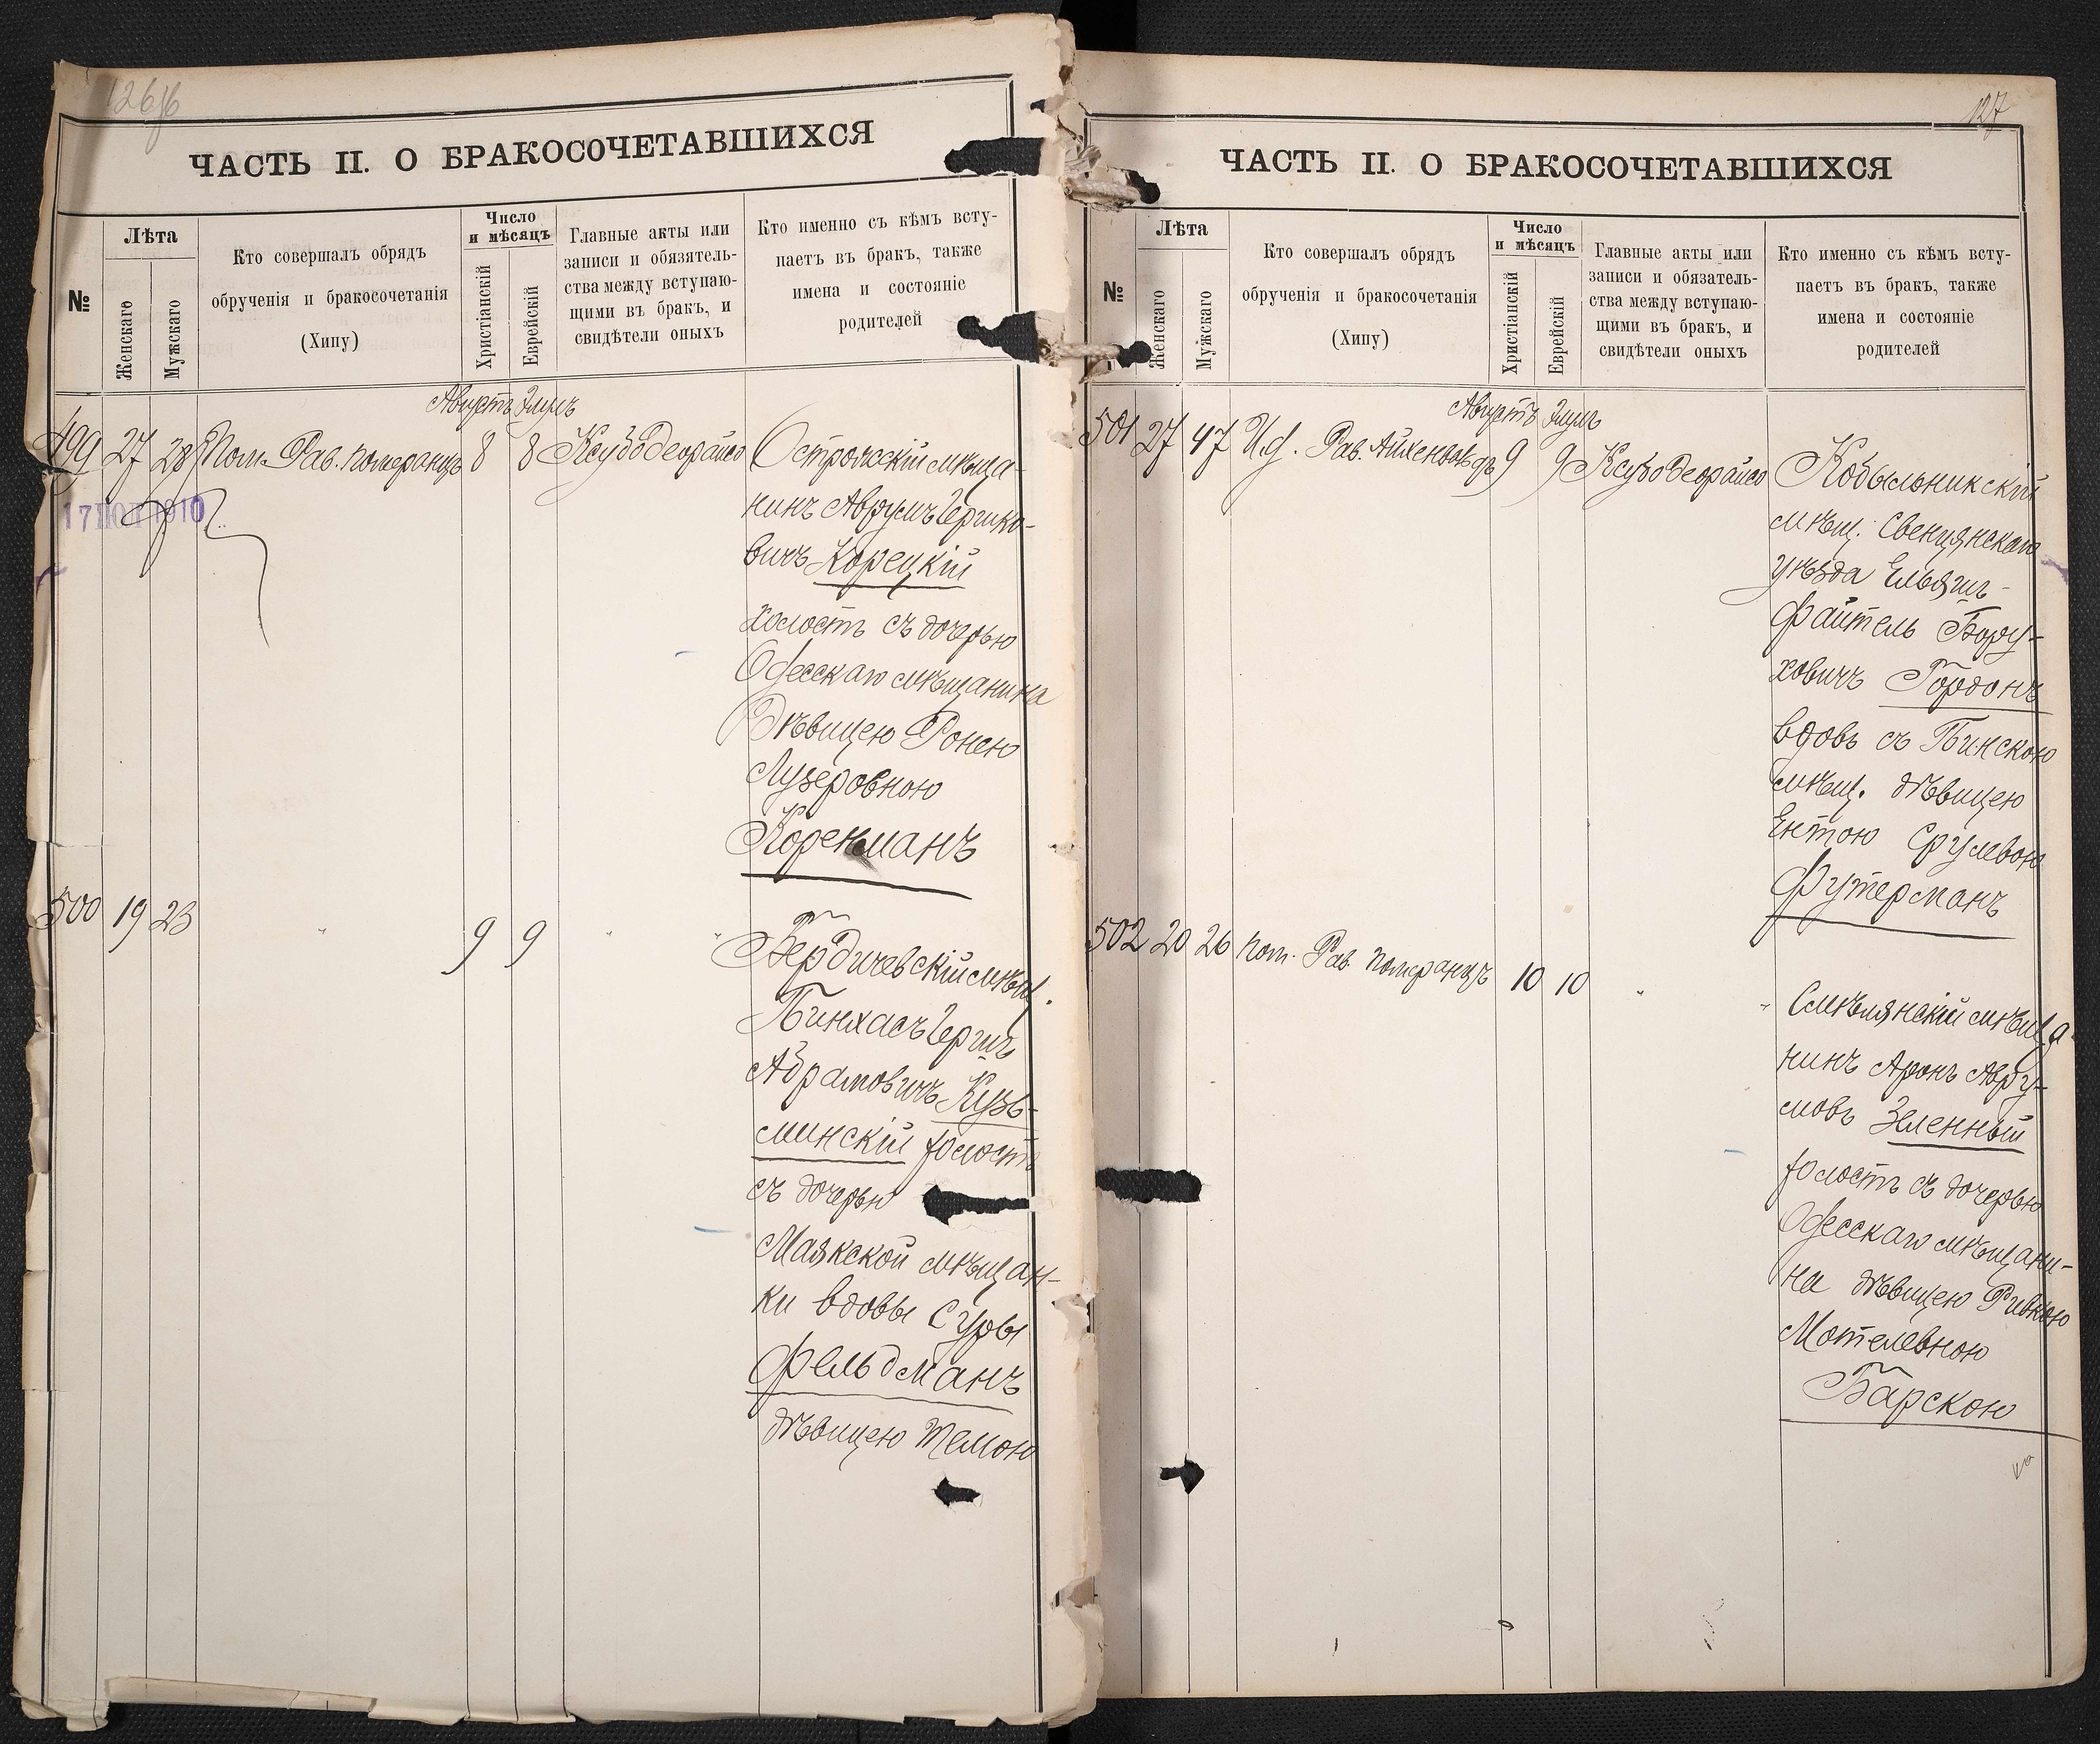 126 об
ЧАСТЬ II. О БРАКОСОЧЕТАВШИХСЯ
№
Лѣта
Женскаго
Мужскаго
Кто совершалъ обрядъ
обрученія и бракосочетанія
(Хипу)
Число
и мѣсяцъ
Христіанскій
Еврейскій
Главные акты или
записи и обязатель-
ства между вступаю-
щими въ бракъ, и
свидѣтели оныхъ
Кто именно съ кѣмъ всту-
паетъ въ бракъ, также
имена и состояніе
родителей
Августъ Элулъ
499 27 28 Пом. Рав. Померанцъ 8 8 Ксубо Деорайсо
17 1910
Острожскій мѣща-
нинъ Аврумъ Гершко-
вичъ Корецкій
холостъ съ дочерью
Одесскаго мѣщанина
Дѣвицею Ронею
Лузеровною
Коренманъ
500 19 23 " 9 9 " "
Бердичевскій мѣщ.
Пинхасъ Гершъ
Абрамовичъ Кузь-
минскій холостъ
съ дочерью
Маякской мѣщан-
ки вдовы Суры
Фельдманъ
дѣвицею Темою
127
ЧАСТЬ II. О БРАКОСОЧЕТАВШИХСЯ
№
Лѣта
Женскаго
Мужскаго
Кто совершалъ обрядъ
обрученія и бракосочетанія
(Хипу)
Число
и мѣсяцъ
Христіанскій
Еврейскій
Главные акты или
записи и обязатель-
ства между вступаю-
щими въ бракъ, и
свидѣтели оныхъ
Кто именно съ кѣмъ всту-
паетъ въ бракъ, также
имена и состояніе
родителей
Августъ Элулъ
501 27 47 И.д. Рав. Айхенвальдъ 9 9 Ксубо Деорайсо
Кобыльникскій
мѣщ. Свенцянскаго
уѣзда Ельяшъ-
Файтель Бору-
ховичъ Гордонъ
вдовъ съ Пинскою
мѣщ. дѣвицею
Ентою Срулевою
Футерманъ
502 20 26 пом. Рав. Померанцъ 10 10 " "
Смѣлянскій мѣща-
нинъ Аронъ Авру-
мовъ Зеленный
холостъ съ дочерью
Одесскаго мѣщани-
на дѣвицею Ривкою
Мотелевною
Барскою